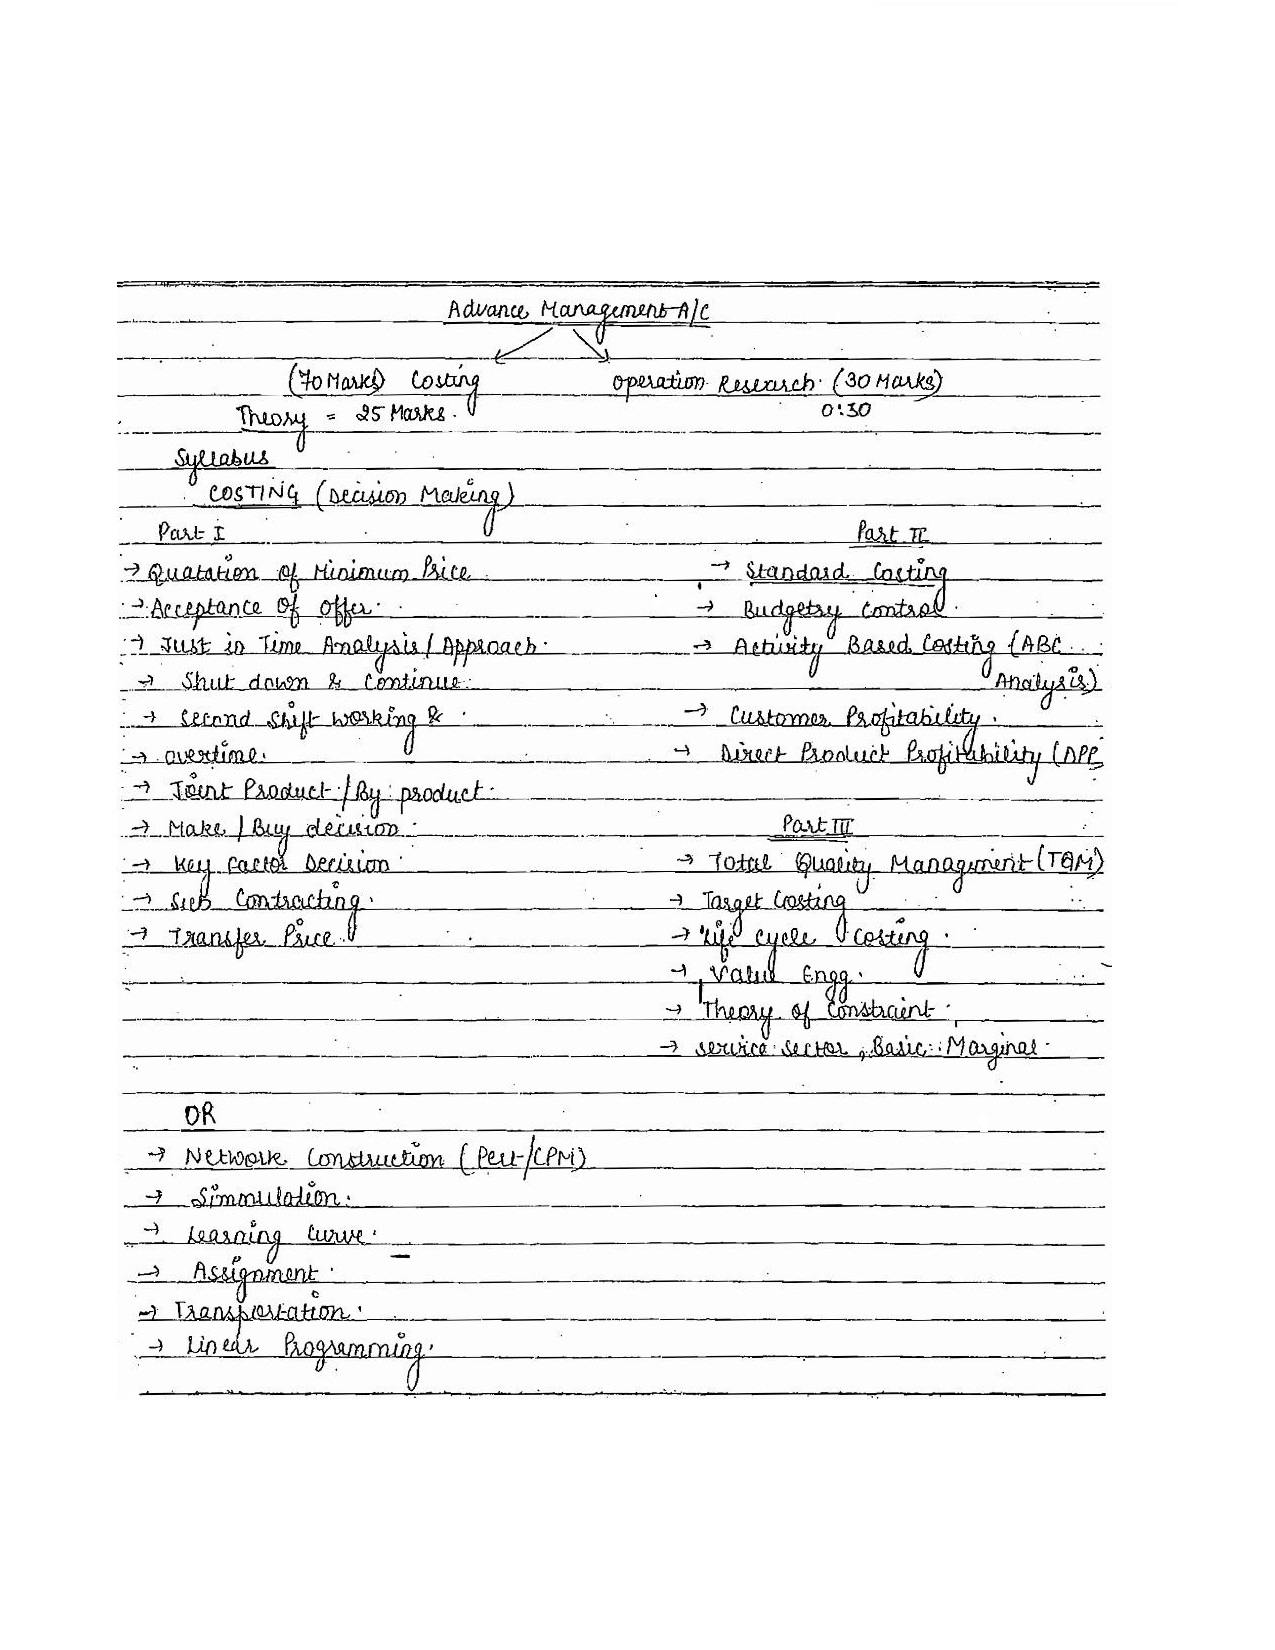 Advance Management A/C
(70 Marks) Costing
Operation Research (30 Marks)
Theory = 25 Marks.
0:30
Syllabus
COSTING (Decision Making)
Part I
→ Quatation of Minimum Price
→ Acceptance of offer.
→ Just in Time Analysis / Approach.
→ Shut down & Continue.
→ Second shift working &
→ overtime.
→ Joint Product / By product.
→ Make / Buy decision.
→ Key Factor Decision
→ Sub Contracting.
→ Transfer Price.
Part II
→ Standard Costing
→ Budgetry Control.
→ Activity Based Costing (ABC
Analysis)
→ Customer Profitability.
→ Direct Product Profitability (DPP
Part III
→ Total Quality Management (TQM)
→ Target Costing
→ Life cycle Costing.
→ Value Engg.
→ Theory of Constraint
→ service sector, Basic Marginal
OR
→ Network Construction (Pert/CPM)
→ Simmulation.
→ Learning Curve.
→ Assignment.
→ Transportation.
→ Linear Programming.